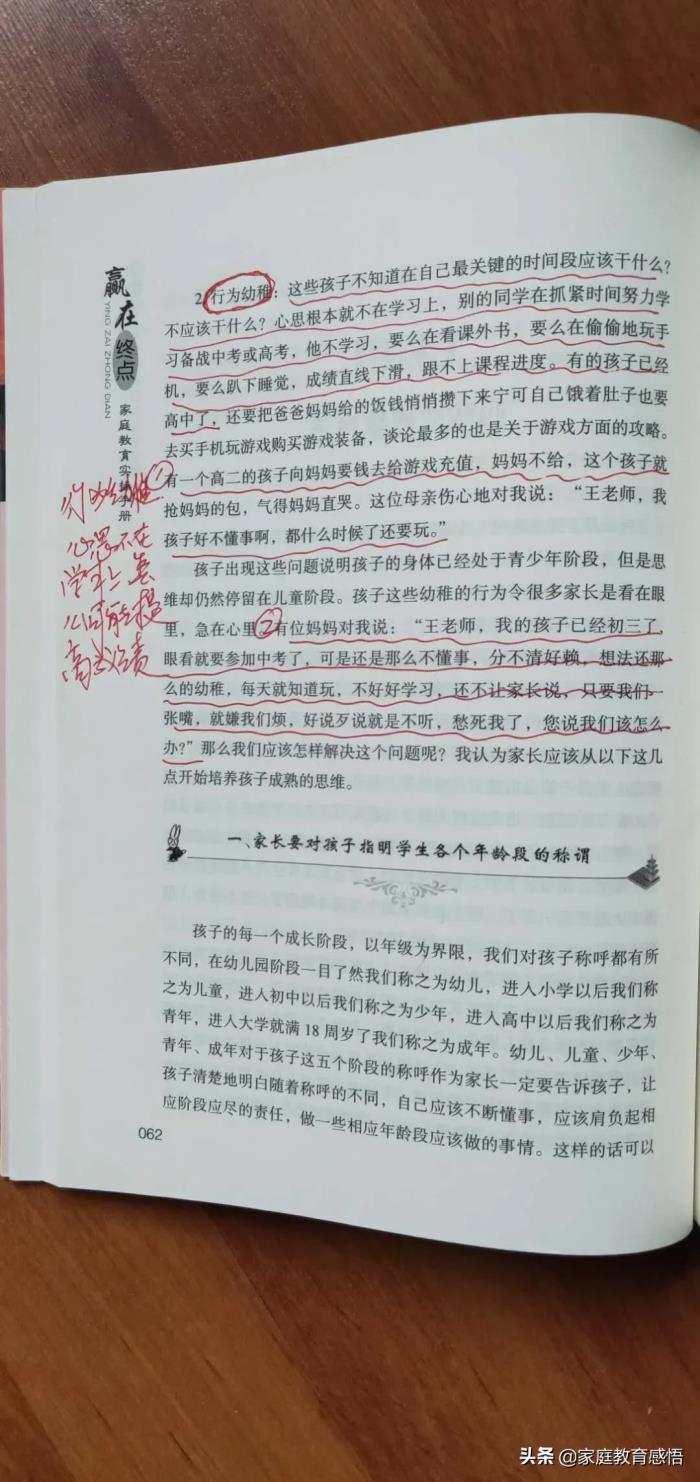 赢在终点
YING ZAI ZHONG DIAN
家庭教育实操手册
2.行为幼稚：这些孩子不知道在自己最关键的时间段应该干什么？
不应该干什么？心思根本就不在学习上，别的同学在抓紧时间努力学
习备战中考或高考，他不学习，要么在看课外书，要么在偷偷地玩手
机，要么趴下睡觉，成绩直线下滑，跟不上课程进度。有的孩子已经
高中了，还要把爸爸妈妈给的饭钱悄悄攒下来宁可自己饿着肚子也要
去买手机玩游戏购买游戏装备，谈论最多的也是关于游戏方面的攻略。
①
有一个高二的孩子向妈妈要钱去给游戏充值，妈妈不给，这个孩子就
抢妈妈的包，气得妈妈直哭。这位母亲伤心地对我说：“王老师，我
孩子好不懂事啊，都什么时候了还要玩。”
行为幼稚
心思不在
学习上
高成绩
孩子出现这些问题说明孩子的身体已经处于青少年阶段，但是思
维却仍然停留在儿童阶段。孩子这些幼稚的行为令很多家长是看在眼
里，急在心里。②有位妈妈对我说：“王老师，我的孩子已经初三了，
眼看就要参加中考了，可是还是那么不懂事，分不清好赖，想法还那
么的幼稚，每天就知道玩，不好好学习，还不让家长说，只要我们一
张嘴，就嫌我们烦，好说歹说就是不听，愁死我了，您说我们该怎么
办？”那么我们应该怎样解决这个问题呢？我认为家长应该从以下这几
点开始培养孩子成熟的思维。
一、家长要对孩子指明学生各个年龄段的称谓
孩子的每一个成长阶段，以年级为界限，我们对孩子称呼都有所
不同，在幼儿园阶段一目了然我们称之为幼儿，进入小学以后我们称
之为儿童，进入初中以后我们称之为少年，进入高中以后我们称之为
青年，进入大学就满 18 周岁了我们称之为成年。幼儿、儿童、少年、
青年、成年对于孩子这五个阶段的称呼作为家长一定要告诉孩子，让
孩子清楚地明白随着称呼的不同，自己应该不断懂事，应该肩负起相
应阶段应尽的责任，做一些相应年龄段应该做的事情。这样的话可以
062
头条 @家庭教育感悟